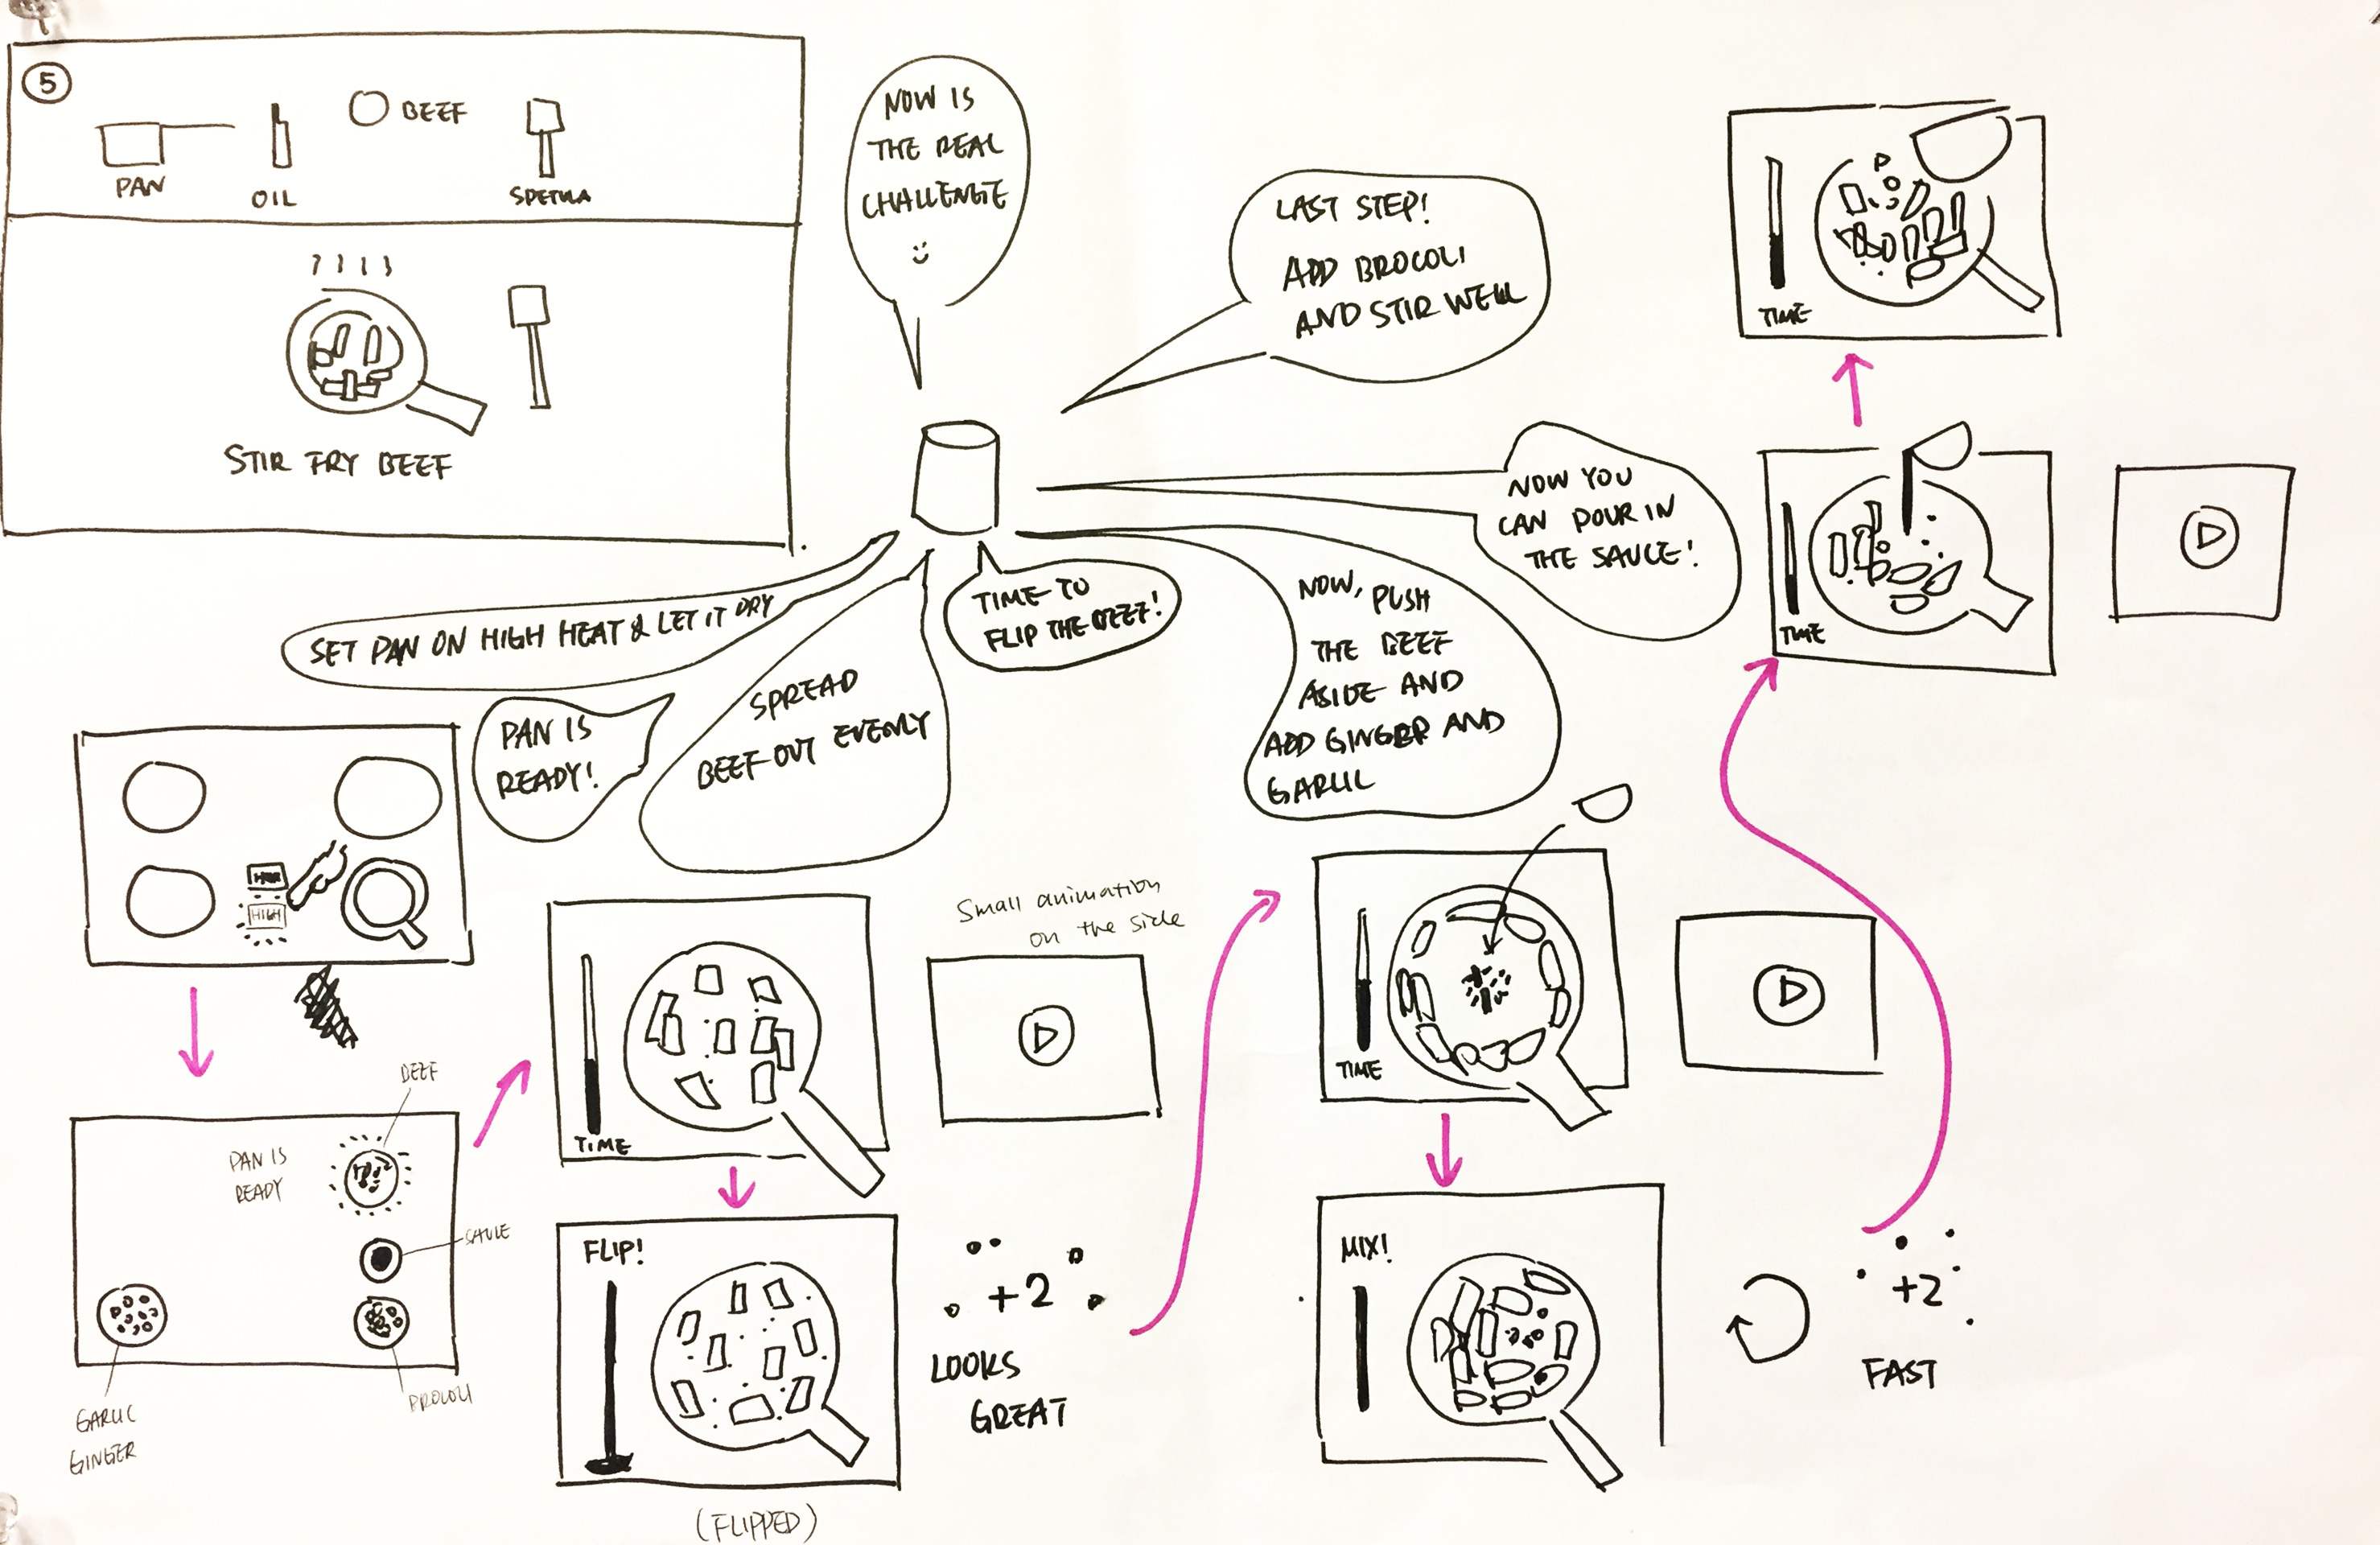 5
BEEF
PAN
OIL
SPETULA
STIR FRY BEEF
NOW IS
THE REAL
CHALLENGE
LAST STEP!
ADD BROCOLI
AND STIR WELL
TIME
NOW YOU
CAN POUR IN
THE SAUCE!
TIME
SET PAN ON HIGH HEAT & LET IT DRY
TIME TO
FLIP THE BEEF!
NOW, PUSH
THE BEEF
ASIDE AND
ADD GINGER AND
GARLIC
PAN IS
READY!
SPREAD
BEEF OUT EVENLY
HIGH
Small animation
on the side
TIME
TIME
BEEF
PAN IS
READY
SAUCE
BROCOLI
GARLIC
GINGER
FLIP!
+2
LOOKS
GREAT
(FLIPPED)
MIX!
+2
FAST